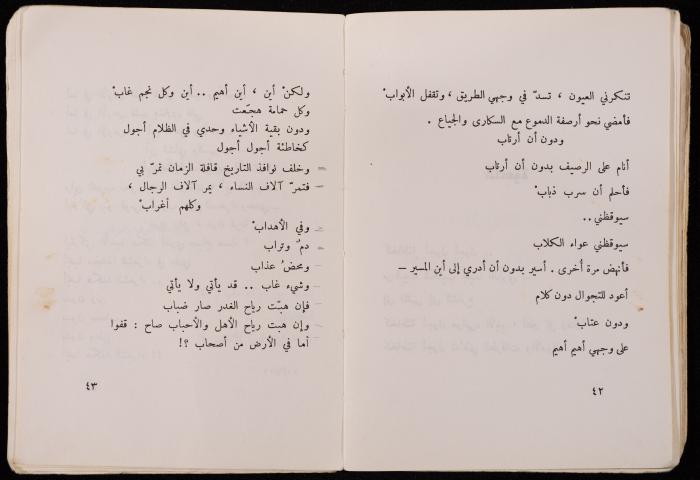 تنكرني العيون ، تسدّ في وجهي الطريق ، وتقفل الأبوابْ
فأمضي نحو أرصفة الدموع مع السكارى والجياع .
ودون أن أرتاب
أنام على الرصيف بدون أن أرتاب
فأحلم أن سرب ذبابْ
سيوقظني..
سيوقظني عواء الكلاب
فأنهض مرة أُخرى . أسير بدون أن أدري إلى أين المسير –
أعود للتجوال دون كلام
ودون عتابْ
على وجهي أهيم أهيم
٤٢
ولكنْ أين ، أين أهيم .. أين وكل نجم غابْ
وكل حمامة هجعت
ودون بقية الأشياء وحدي في الظلام أجول
كخاطئة أجول أجول
وخلف نوافذ التاريخ قافلة الزمان تمرّ بي
فتمرّ آلاف النساء ، يمر آلاف الرجال ،
وكلهم أغرابْ
وفي الأهدابْ
دمٌ وتراب
ومحضُ عذاب
وشيء غاب .. قد يأتي ولا يأتي
فإن هبّت رياح الغدر صار ضباب
وإن هبت رياح الأهل والأحباب صاح : قفوا
أما في الأرض من أصحاب ؟!
٤٣